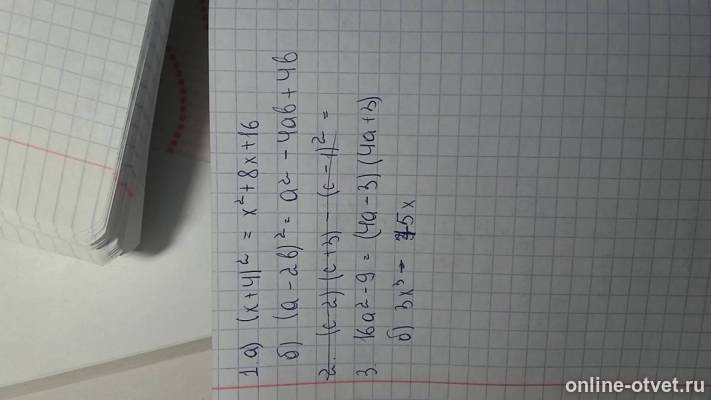 1. а) (x+4)² = x²+8x+16
б) (a-2b)² = a² - 4ab + 4b
2. (c-2)(c+3) - (c-1)² =
3. 16a²-9 = (4a-3)(4a+3)
б) 3x³ - 75x
online-otvet.ru